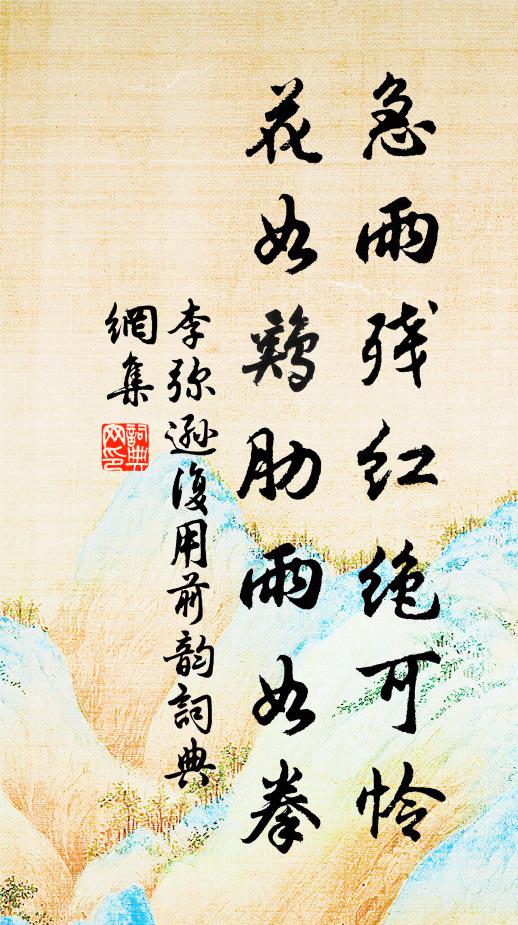 急雨残红绝可怜
花如鸡肋雨如拳
李弥逊復用前韵詞典
網集
詞典网印